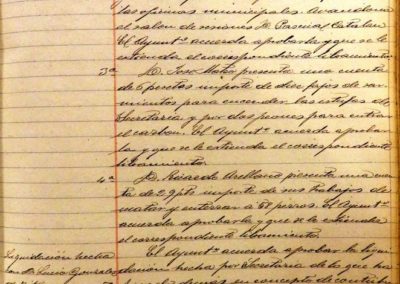 las oficinas municipales. Abandona
el salon de sesiones D. Pascual Catalan
El Ayuntº acuerda aprobarla y que se le
extienda el correspondiente libramiento
3ª D. José Mateo presenta una cuenta
de 5 pesetas importe de diez fajos de sar-
mientos para encender las estufas de
Secretaria y por dos peones para entrar
el carbon. El Ayuntº acuerda aprobar
la y que se le extienda el correspondiente
libramiento.
4ª D. Ricardo Arellano presenta una cuen
ta de 29 pts importe de sus trabajos de
matar y enterrar a 58 perros. El Ayuntº
acuerda aprobarla y que se le extienda
el correspondiente libramiento.
Liquidación hecha
El Ayuntº acuerda aprobar la liqui
a D. Lucio Gonzalez
dacion hecha por Secretaria de lo que ha
en concepto de contribu